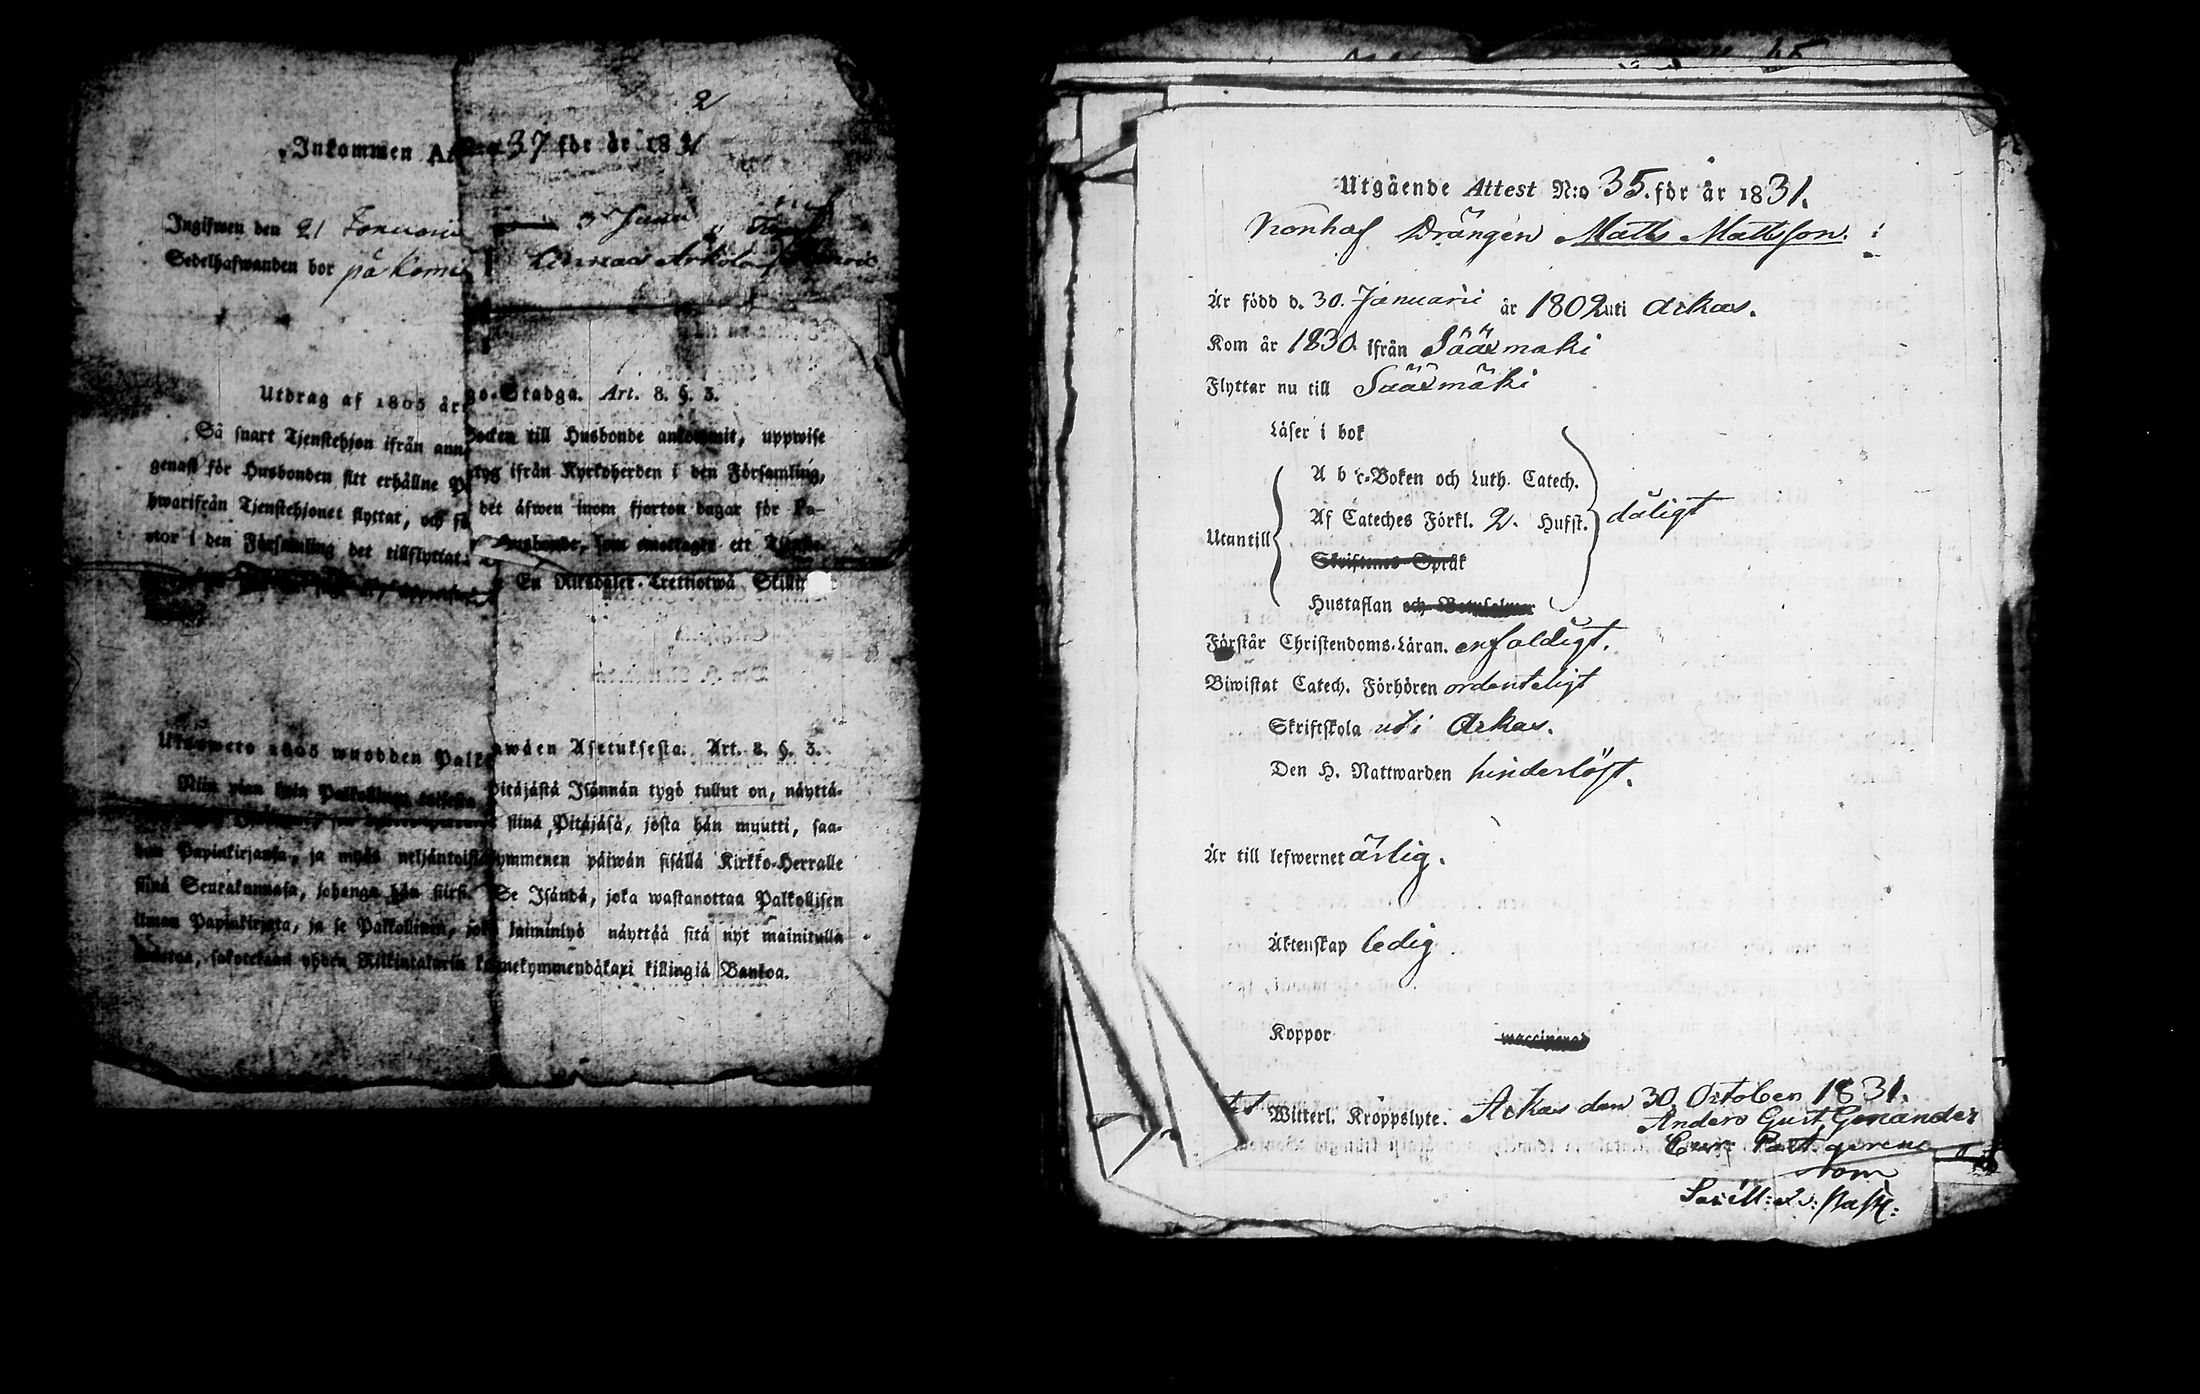 2
Inkommen At N:o 37 för år 1831
Ingifwen den 21
Sedelhafwanden bor på
Utdrag af 1805 år go-Stadga. Art. 8. §. 3.
Så snart Tjenstehjon ifrån ann Socken till Husbonde ankommit, uppwise
genast för Husbonden sitt erhållne tyg ifrån Kyrkoherden i den Församling,
hwarifrån Tjenstehjonet flyttat, och det äfwen inom fjorton dagar för Pa-
stor i den Församling det tillflyttat. Husbonde, som emottager ett
En Riksdaler Trettiotwå Skilling
1805 wuodden Palk awäen Asetuksesta. Art. 8. §. 3.
Niin pian kuin Palkollinen toisesta Pitäjästä Isännän tygö tullut on, näyttä-
siinä Pitäjäsä, josta hän muutti, saa-
dun Papinkirjansa, ja myös neljäntoistakymmenen päiwän sisällä Kirkko-Herralle
siinä Seurakunnasa, johonga hän siirsi. Se Isändä, joka wastanottaa Palkollisen
ilman Papinkirjata, ja se Palkollinen, joka laiminlyö näyttää sitä nyt mainitulla
sakotetaan yhden Riikintalarin kolmekymmendäkaxi killingiä Bankoa.
Utgående Attest N:o 35. för år 1831.
Drängen Matts Mattsson.
Är född d. 30. Januarii år 1802 uti Ackas.
Kom år 1830. ifrån Sääxmäki
Flyttar nu till Sääxmäki
Läser i bok
A b c-Boken och Luth. Catech.
Af Cateches Förkl. 2. Hufst. dåligt
Utantill
Skriftenes Språk
Hustaflan och Botpsalmer
Förstår Christendoms-Läran. enfaldigt.
Biwistat Catech. Förhören ordenteligt
Skriftskola uti Ackas.
Den H. Nattwarden hinderlöst.
Är till lefwernet ärlig.
Äktenskap ledig
Koppor vaccinerad
Witterl. Kroppslyte. Ackas den 30 October 1831.
Anders Gust Genander